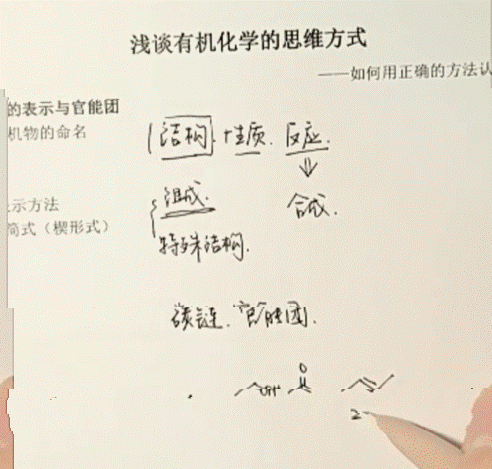 浅谈有机化学的思维方式
——如何用正确的方法认
的表示与官能团
机物的命名
结构. 性质. 反应.
示方法
组成.
合成.
简式（楔形式）
特殊结构.
碳链. 官能团.
O
OH
2-